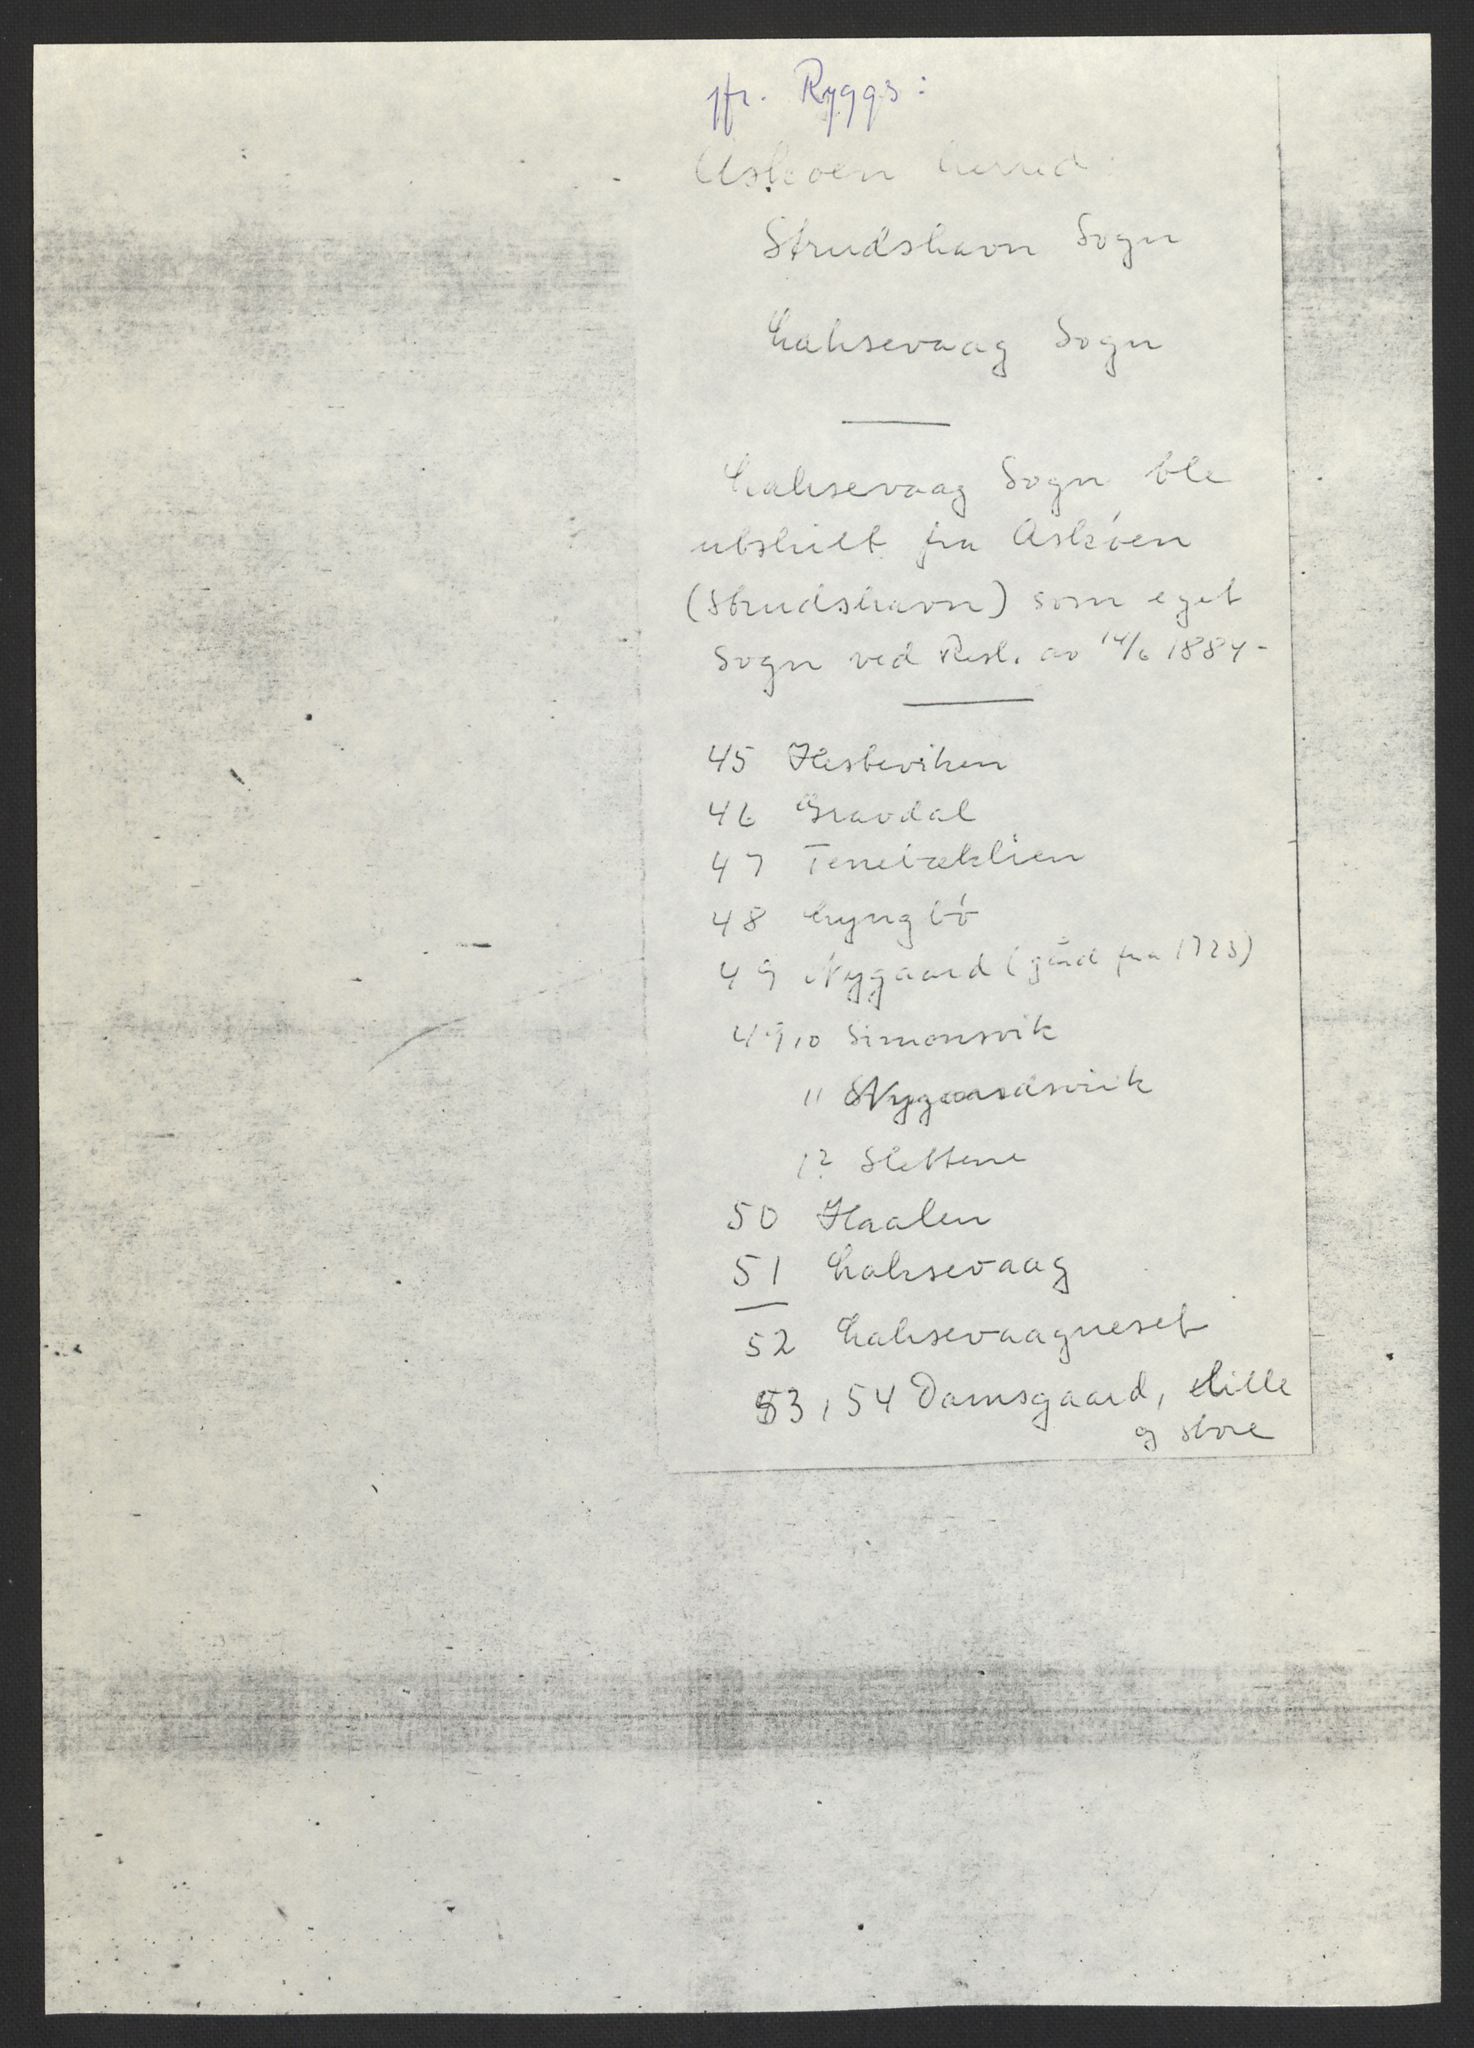 jfr. Ryggs:
Askøen herred
Strudshavn Sogn
Laksevaag Sogn
Laksevaag Sogn ble
utskilt fra Askøen
(Strudshavn) som eget
Sogn ved Resl. av 14/6 1884-
45 Hesteviken
46 Gravdal
47 Tennebæklien
48 Lyngbø
49 Nygaard (gård fra 1723)
49,10 Simonsvik
11 Nygaardsvik
12 Slettene
50 Haalen
51 Laksevaag
52 Laksevaagneset
53, 54 Damsgaard, Lille
og store